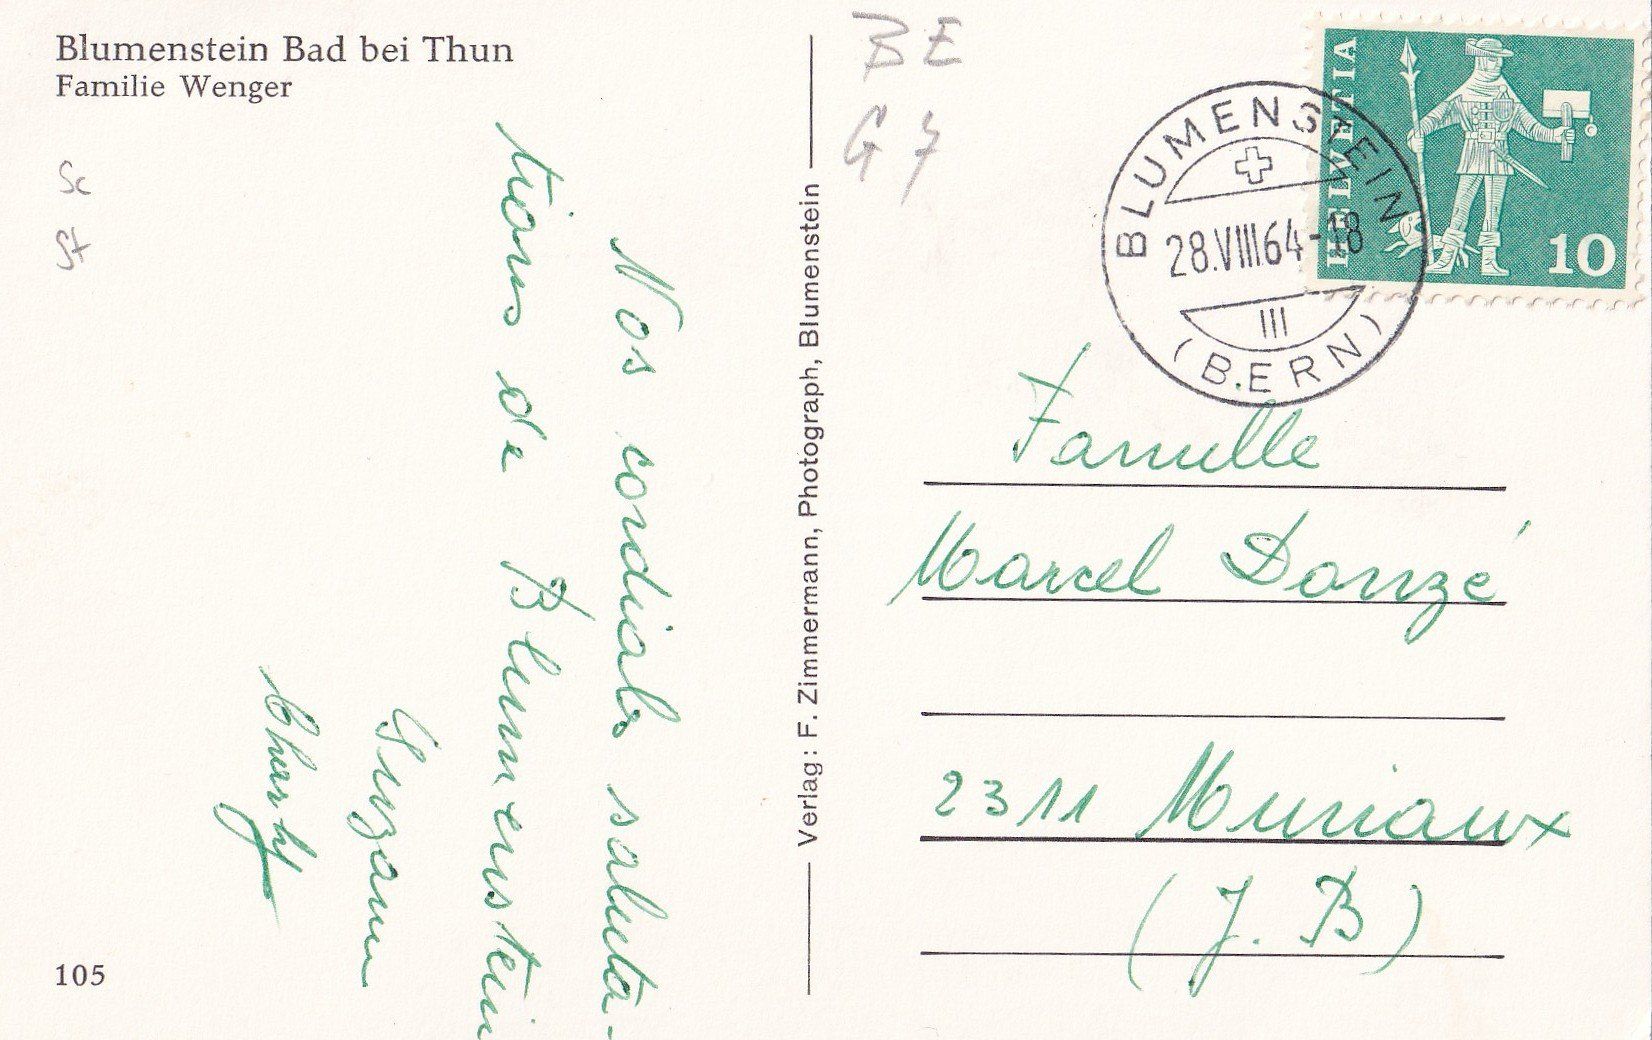 Blumenstein Bad bei Thun
Familie Wenger
Sc
St
Nos cordiales saluta-
tions de Blumenstein
Suzanne
105
Verlag: F. Zimmermann, Photograph, Blumenstein
BE
G 7
HELVETIA
10
BLUMENSTEIN
28.VIII64-18
III
(BERN)
Famille
Marcel Donzé
2311 Muriaux
(J. B)